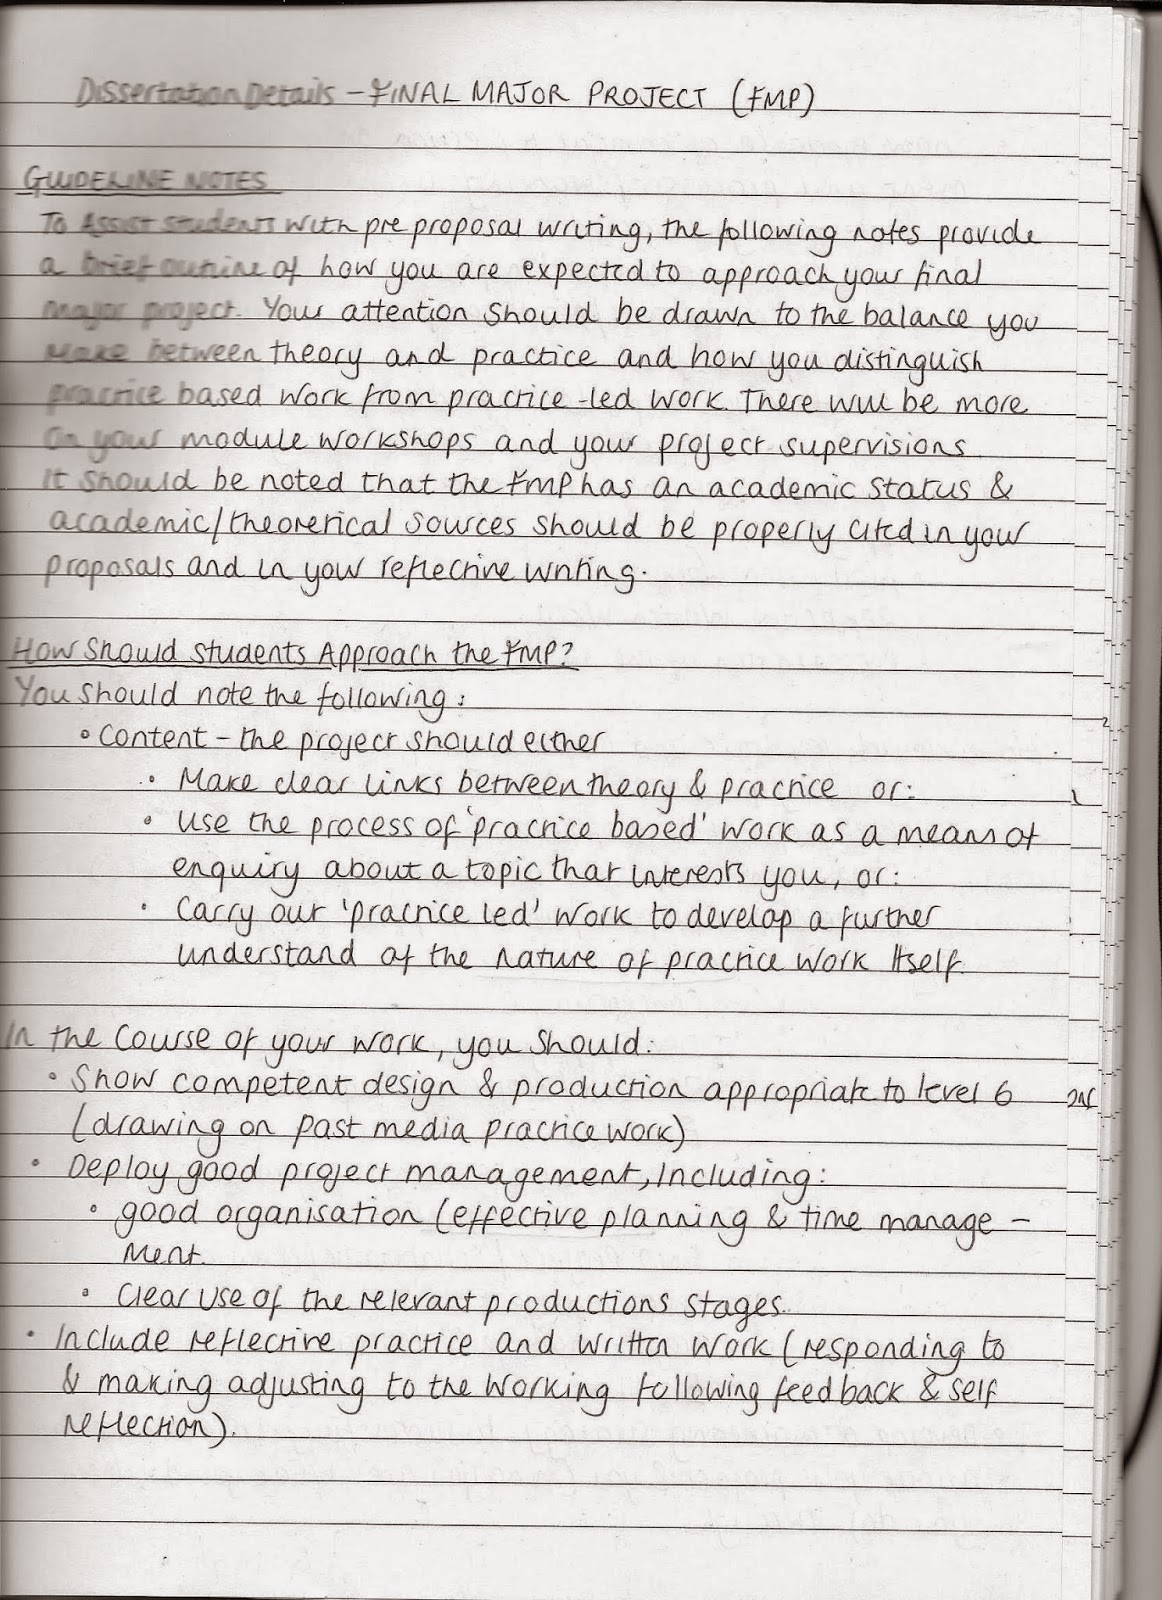 Dissertation Details - FINAL MAJOR PROJECT (FMP)
GUIDELINE NOTES
To Assist students with pre proposal writing, the following notes provide
a brief outline of how you are expected to approach your final
major project. Your attention should be drawn to the balance you
make between theory and practice and how you distinguish
practice based work from practice-led work. There will be more
on your module workshops and your project supervisions
It should be noted that the FMP has an academic status &
academic/theorerical sources should be properly cited in your
proposals and in your reflective writing.
How Should students Approach the FMP?
You should note the following:
• Content - the project should either
• Make clear links between theory & practice or:
• Use the process of 'practice based' work as a means of
enquiry about a topic that interests you, or:
• Carry out 'practice led' work to develop a further
understand of the nature of practice work itself
In the course of your work, you should:
• Show competent design & production appropriate to level 6
(drawing on past media practice work)
• Deploy good project management, Including:
• good organisation (effective planning & time manage -
ment.
• Clear use of the relevant productions stages.
• Include reflective practice and written work (responding to
& making adjusting to the working following feedback & self
reflection).